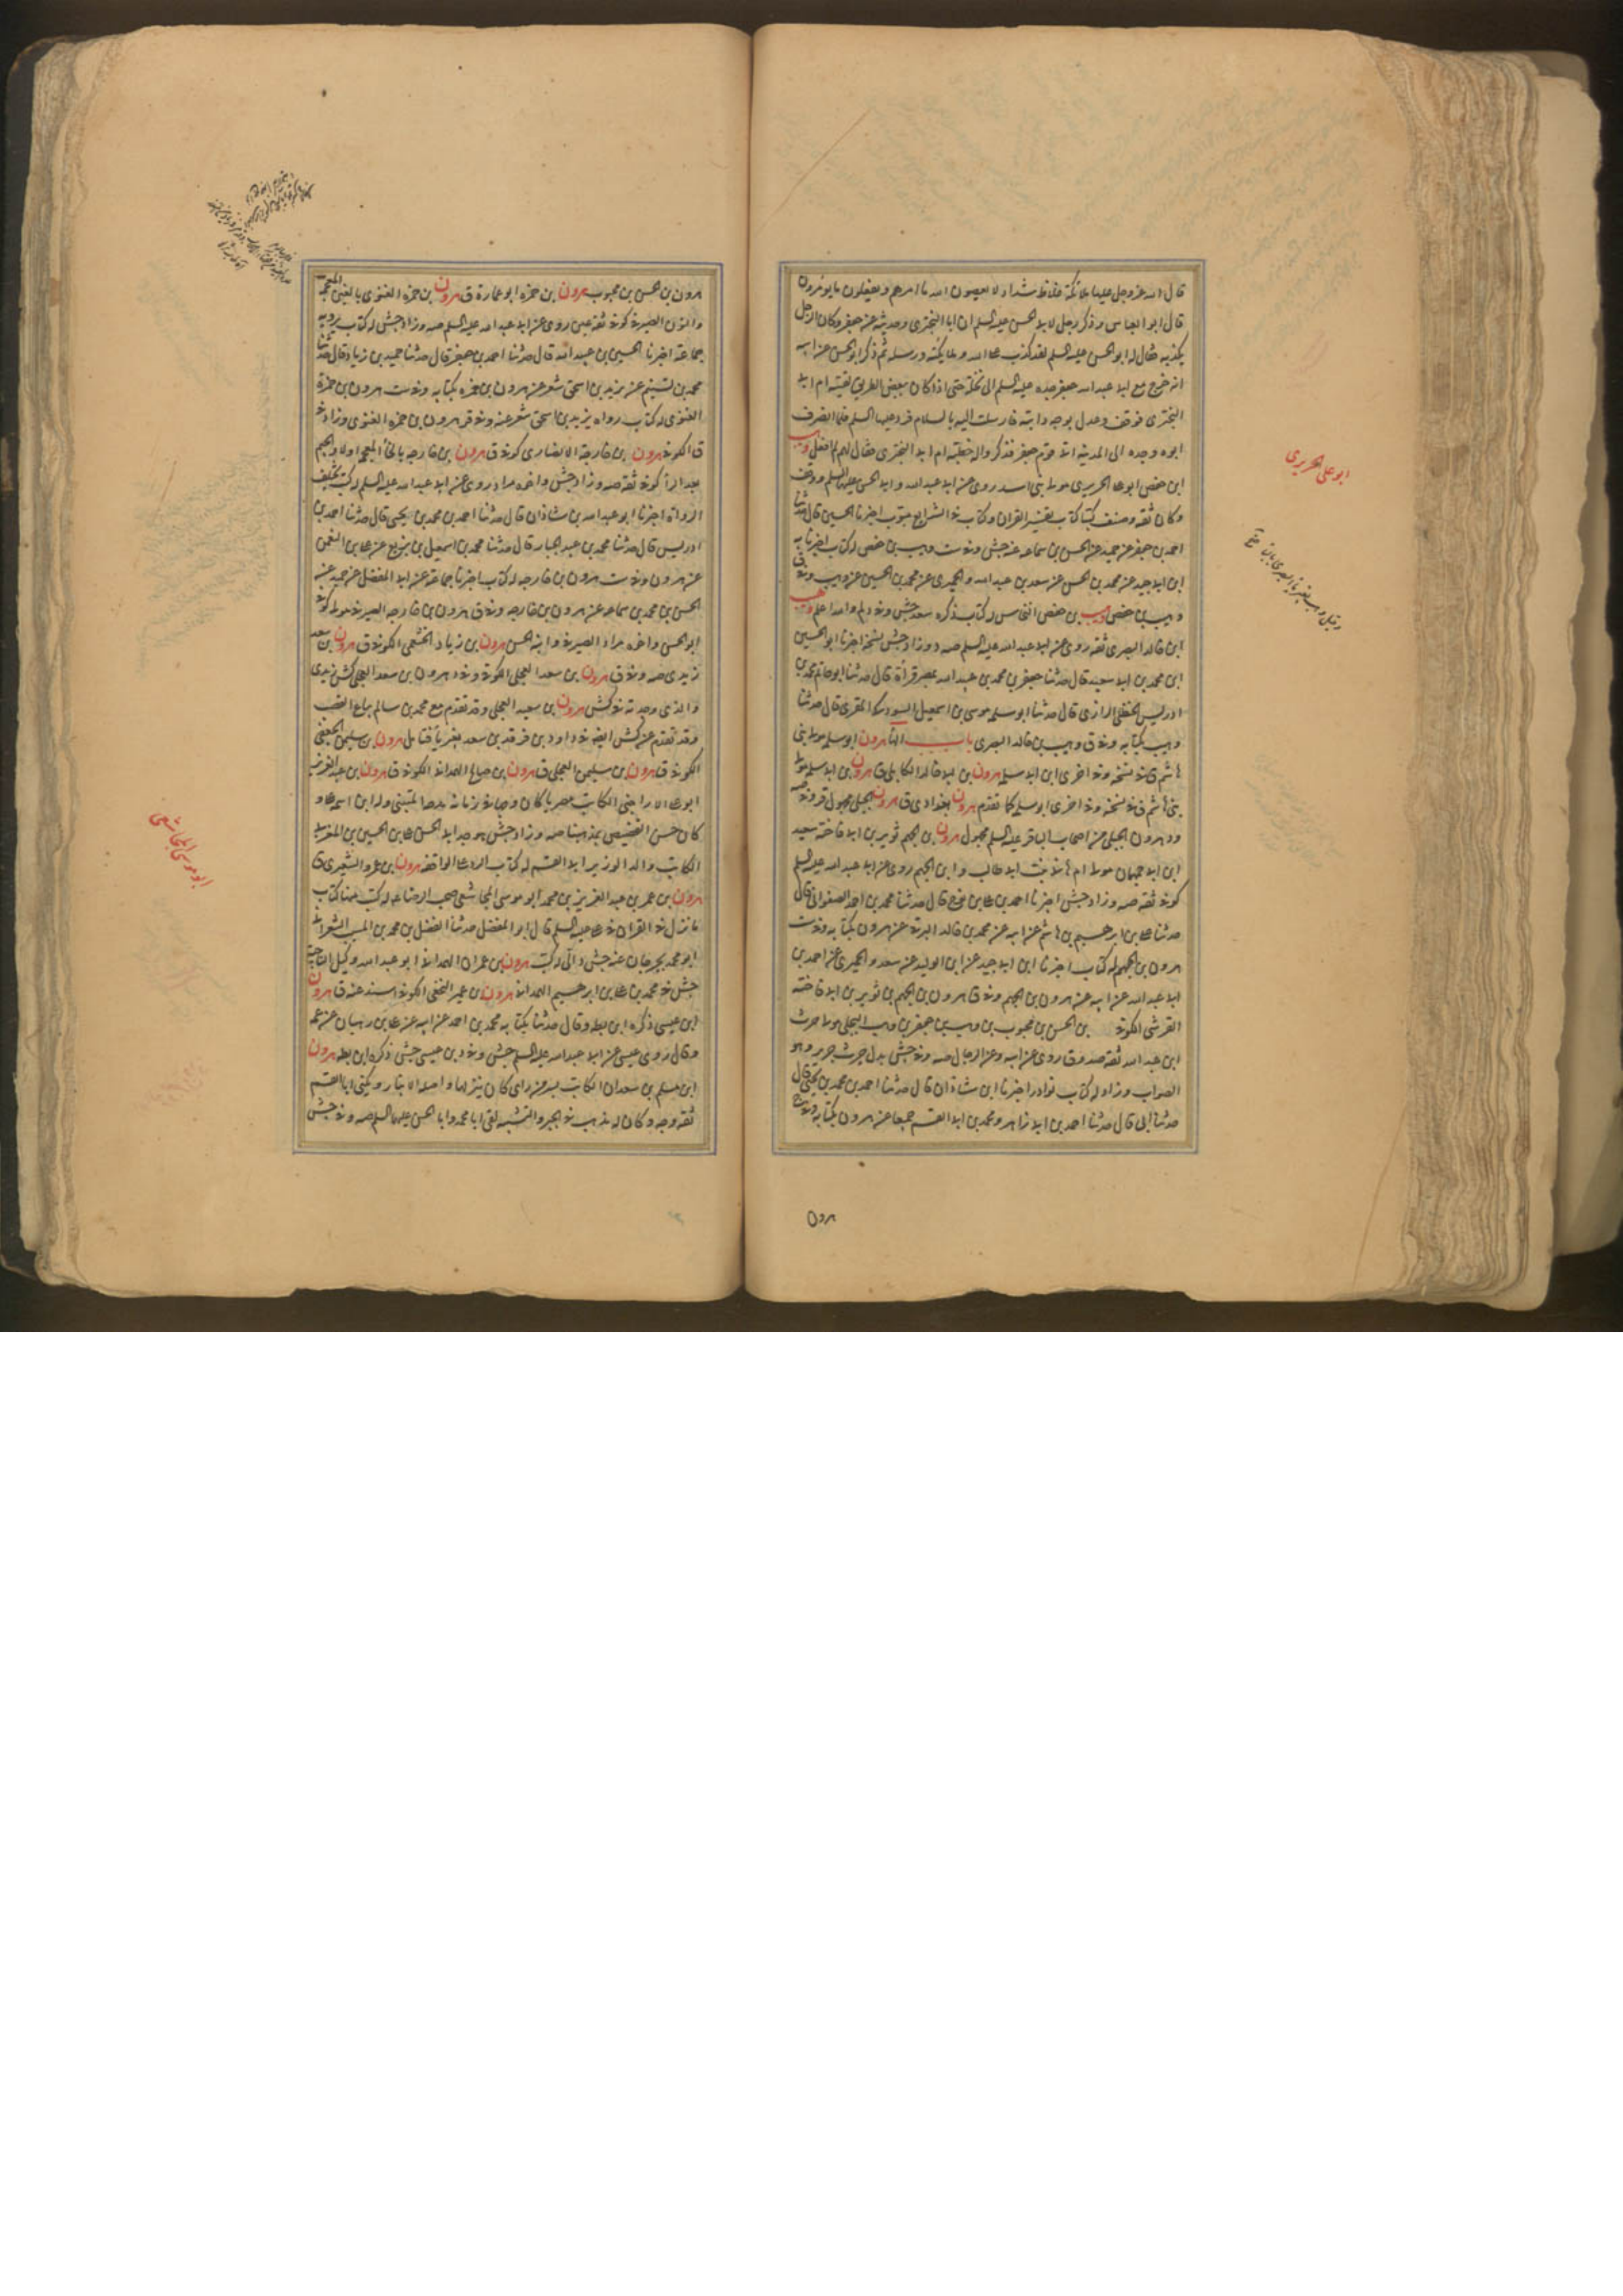 قال الله عز وجل عليها ملائكة غلاظ شداد لا يعصون الله ما امرهم ويفعلون ما يؤمرون
قال ابو العباس وذكر رجل لابى الحسن عليه السلم ان ابا البخترى وحديثه عن جعفر وكان الرجل
يكذبه فقال له ابو الحسن عليه السلم لقد كذب على الله وملائكته ورسله ثم ذكر ابو الحسن عن ابيه
انه خرج مع ابى عبد الله جعفر جده عليه السلم الى نخلة حتى اذا كان ببعض الطريق لقيته ام ابى
البخترى فوقف وعدل بوجه دابته فارسلت اليه بالسلام فرد عليها السلم فلما انصرف
ابوه وجده الى المدينة اتى قوم جعفر فذكروا له خطبته ام ابى البخترى فقال لهم لم افعل وهيب
ابن حفص ابو على الحريرى مولى بنى اسد روى عن ابى عبد الله وابى الحسن عليهما السلم ووقف
وكان ثقة وصنف كتبا كتاب تفسير القران وكتاب فى الشرايع مبوب اخبرنا الحسين قال حدثنا
احمد بن جعفر عن حميد عن الحسن بن سماعه عنه جش وفى ست وهيب بن حفص له كتاب اخبرنا به
ابن ابى جيد عن محمد بن الحسن عن سعد بن عبد الله والحميرى عن محمد بن الحسين عن وهيب وفى ق
وهيب بن حفص وهيب بن حفص النخاس له كتاب ذكره سعد جش وفى دلم والله اعلم وهيب
ابن خالد البصرى ثقة روى عن ابى عبد الله عليه السلم صه د وزاد جش نسخة اخبرنا ابو الحسين
ابن محمد بن ابى سعيد قال حدثنا جعفر بن محمد بن عبد الله بمصر قرأة قال حدثنا ابو حاتم محمد بن
ادريس الحنظلى الرازى قال حدثنا ابو سلمه موسى بن اسمعيل المقرى قال حدثنا
وهيب بكتابه وفى ق وهيب بن خالد البصرى باب الها هرون ابو سلمه مولى بنى
هاشم ق فى نسخة وفى اخرى ابن ابى سلمه هرون بن ابى خالد الكابلى ق هرون بن ابى سلمه مولى
بنى هاشم ق فى نسخة وفى اخرى ابو سلمه كما تقدم هرون بغدادى ق هرون الجبلى مجهول قر وفى صه
ود هرون الجبلى من اصحاب الباقر عليه السلم مجهول هرون بن الجهم ثوير بن ابى فاخته سعيد
ابن ابى جهمان مولى ام هانى بنت ابى طالب وابن الجهم روى عن ابى عبد الله عليه السلم
كوفى ثقة صه وزاد جش اخبرنا احمد بن على بن نوح قال حدثنا محمد بن احمد الصفوانى قال
حدثنا على بن ابرهيم بن هاشم عن ابيه عن محمد بن خالد البرقى عن هرون بكتابه وفى ست
هرون بن الجهم له كتاب اخبرنا ابن ابى جيد عن ابن الوليد عن سعد والحميرى عن احمد بن
ابى عبد الله عن ابيه عن هرون بن الجهم وفى ق هرون بن الجهم بن ثوير بن ابى فاخته
القرشى الكوفى بن الحسن بن محبوب بن وهب بن جعفر بن وهب البجلى مولى حرث
ابن عبد الله ثقة صدوق روى عن ابيه وعن الرجال صه وفى جش بدل حرث جرير وهو
الصواب وزاد له كتاب نوادر اخبرنا ابن شاذان قال حدثنا احمد بن محمد بن يحيى قال
حدثنا ابى قال حدثنا احمد بن ابى زاهر ومحمد بن ابى القسم جميعا عن هرون بكتابه وفى
هرون
ابو على الحريرى
هرون بن الحسن بن محبوب هرون بن حمزه ابو عمارة ق هرون بن حمزه الغنوى بالغين المعجمه
والنون الصيرفى كوفى ثقة عين روى عن ابى عبد الله عليه السلم صه وزاد جش له كتاب يرويه
جماعة اخبرنا الحسين بن عبيد الله قال حدثنا احمد بن جعفر قال حدثنا حميد بن زياد قال حدثنا
محمد بن عن يزيد بن اسحق شعر عن هرون بن حمزه بكتابه وفى ست هرون بن حمزة
الغنوى له كتاب رواه يزيد بن اسحق شعر عنه وفى قر هرون بن حمزه الغنوى وزاد فى
ق الكوفى هرون بن خارجة الانصارى كوفى ق هرون بن خارجه بالخاء المعجمه اولا والجيم
بعد الراء كوفى ثقة صه وزاد جش واخوه مراد روى عن ابى عبد الله عليه السلم له كتب تختلف
الرواة اخبرنا ابو عبد الله بن شاذان قال حدثنا احمد بن محمد بن يحيى قال حدثنا احمد بن
ادريس قال حدثنا محمد بن عبد الجبار قال حدثنا محمد بن اسمعيل بن بزيع عن على بن النعمن
عن هرون وفى ست هرون بن خارجه له كتاب اخبرنا جماعة عن ابى المفضل عن حميد عن
الحسن بن محمد بن سماعه عن هرون بن خارجه وفى ق هرون بن خارجه الصيرفى مولى كوفى
ابو الحسن واخوه مراد الصيرفى وابنه الحسن هرون بن زياد الخثعمى الكوفى ق هرون بن سعد
زيدى صه وفى ق هرون بن سعد العجلى الكوفى وفى د هرون بن سعد العجلى كش زيدى
والذى وجدته فى كش هرون بن سعيد العجلى وقد تقدم مع محمد بن سالم بياع القصب
وقد تقدم عن كش ايضا فى داود بن فرقد بن سعد بغير ياء فتامل هرون بن سليمن الجعفى
الكوفى ق هرون بن سليمن العجلى ق هرون بن صباح الهمدانى الكوفى ق هرون بن عبد العزيز
ابو على الاراجنى الكاتب مصرى كان وجها فى زمانه مدحه المتنبى وله ابن اسمه على و
كان حسن التخصيص بمذهبنا صه وزاد جش هو جد ابى الحسن على بن الحسين بن المغربى
الكاتب والد الوزير ابى القسم له كتاب الرد على الواقفه هرون بن عمرو الشعيرى ق
هرون بن عمر بن عبد العزيز بن محمد ابو موسى المجاشعى صحب الرضا عه له كتب منها كتاب
ما نزل فى القران فى على عليه السلم قال ابو المفضل حدثنا الفضل بن محمد بن المسيب الشعرانى
ابو محمد بجرجان عنه جش هرون بن عمران الهمدانى ابو عبد الله وكيل الناحية
جش فى محمد بن على بن ابرهيم الهمدانى هرون بن عمير النخعى الكوفى اسند عنه ق هرون
ابن عيسى ذكره ابن بطه وقال حدثنا بكتابه محمد بن احمد عن ابيه عن على بن ريان عن عمه
وقال روى عيسى عن ابى عبد الله عليه السلم جش وفى د بن عيسى جش ذكره ابن بطه هرون
ابن مسلم بن سعدان الكاتب سر من راى كان نزلها واصله الانبار ويكنى ابا القسم
ثقة وجه وكان له مذهب فى الجبر والتشبيه لقى ابا محمد وابا الحسن عليهما السلم صه وفى جش
ابو موسى المجاشعى